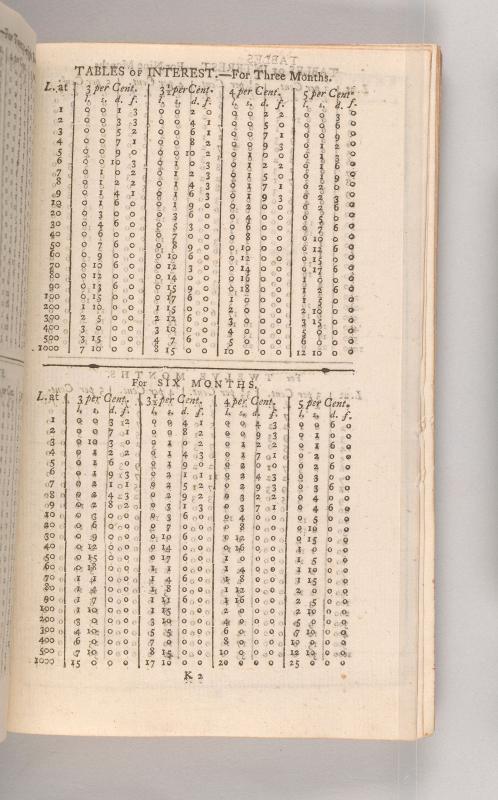 TABLES OF INTEREST.—For Three Months.
L. at 3 per Cent. 3½ per Cent. 4 per Cent. 5 per Cent.
l. s. d. f. l. s. d. f. l. s. d. f. l. s. d. f.
1 0 0 1 3 0 0 2 0 0 0 2 1 0 0 3 0
2 0 0 3 2 0 0 4 1 0 0 4 3 0 0 6 0
3 0 0 5 2 0 0 6 1 0 0 7 1 0 0 9 0
4 0 0 7 1 0 0 8 2 0 0 9 2 0 1 0 0
5 0 0 9 0 0 0 10 2 0 1 0 0 0 1 3 0
6 0 0 10 3 0 1 0 3 0 1 2 2 0 1 6 0
7 0 1 0 2 0 1 2 3 0 1 4 3 0 1 9 0
8 0 1 2 2 0 1 4 3 0 1 7 1 0 2 0 0
9 0 1 4 1 0 1 6 3 0 1 9 3 0 2 3 0
10 0 1 6 0 0 1 9 0 0 2 0 0 0 2 6 0
20 0 3 0 0 0 3 6 0 0 4 0 0 0 5 0 0
30 0 4 6 0 0 5 3 0 0 6 0 0 0 7 6 0
40 0 6 0 0 0 7 0 0 0 8 0 0 0 10 0 0
50 0 7 6 0 0 8 9 0 0 10 0 0 0 12 6 0
60 0 9 0 0 0 10 6 0 0 12 0 0 0 15 0 0
70 0 10 6 0 0 12 3 0 0 14 0 0 0 17 6 0
80 0 12 0 0 0 14 0 0 0 16 0 0 1 0 0 0
90 0 13 6 0 0 15 9 0 0 18 0 0 1 2 6 0
100 0 15 0 0 0 17 6 0 1 0 0 0 1 5 0 0
200 1 10 0 0 1 15 0 0 2 0 0 0 2 10 0 0
300 2 5 0 0 2 12 6 0 3 0 0 0 3 15 0 0
400 3 0 0 0 3 10 0 0 4 0 0 0 5 0 0 0
500 3 15 0 0 4 7 6 0 5 0 0 0 6 0 0
1000 7 10 0 0 8 15 0 0 10 0 0 0 12 10 0 0
For SIX MONTHS.
L. at 3 per Cent. 3½ per Cent. 4 per Cent. 5 per Cent.
l. s. d. f. l. s. d. f. l. s. d. f. l. s. d. f.
1 0 0 3 2 0 0 4 1 0 0 4 3 0 0 6 0
2 0 0 7 1 0 0 8 2 0 0 9 3 0 1 0 0
3 0 0 10 3 0 1 0 2 0 1 2 2 0 1 6 0
4 0 1 2 2 0 1 4 3 0 1 7 1 0 2 0 0
5 0 1 6 0 0 1 9 0 0 2 0 0 0 2 6 0
6 0 1 9 3 0 2 1 1 0 2 4 3 0 3 0 0
7 0 2 1 1 0 2 5 1 0 2 9 2 0 3 6 0
8 0 2 4 3 0 2 9 2 0 3 2 2 0 4 0 0
9 0 2 8 2 0 3 1 3 0 3 7 1 0 4 6 0
10 0 3 0 0 0 3 6 0 0 4 0 0 0 5 0 0
20 0 6 0 0 0 7 0 0 0 8 0 0 0 10 0 0
30 0 9 0 0 0 10 6 0 0 12 0 0 0 15 0 0
40 0 12 0 0 0 14 0 0 0 16 0 0 1 0 0 0
50 0 15 0 0 0 17 6 0 1 0 0 0 1 5 0 0
60 0 18 0 0 1 1 0 0 1 4 0 0 1 10 0 0
70 1 1 0 0 1 4 6 0 1 8 0 0 1 15 0 0
80 1 4 0 0 1 8 0 0 1 12 0 0 2 0 0 0
90 1 7 0 0 1 11 6 0 1 16 0 0 2 5 0 0
100 1 10 0 0 1 15 0 0 2 0 0 0 2 10 0 0
200 3 0 0 0 3 10 0 0 4 0 0 0 5 0 0 0
300 4 10 0 0 5 5 0 0 6 0 0 0 7 10 0 0
400 6 0 0 0 7 0 0 0 8 0 0 0 10 0 0 0
500 7 10 0 0 8 15 0 0 10 0 0 0 12 10 0 0
1000 15 0 0 0 17 10 0 0 20 0 0 0 25 0 0 0
K 2